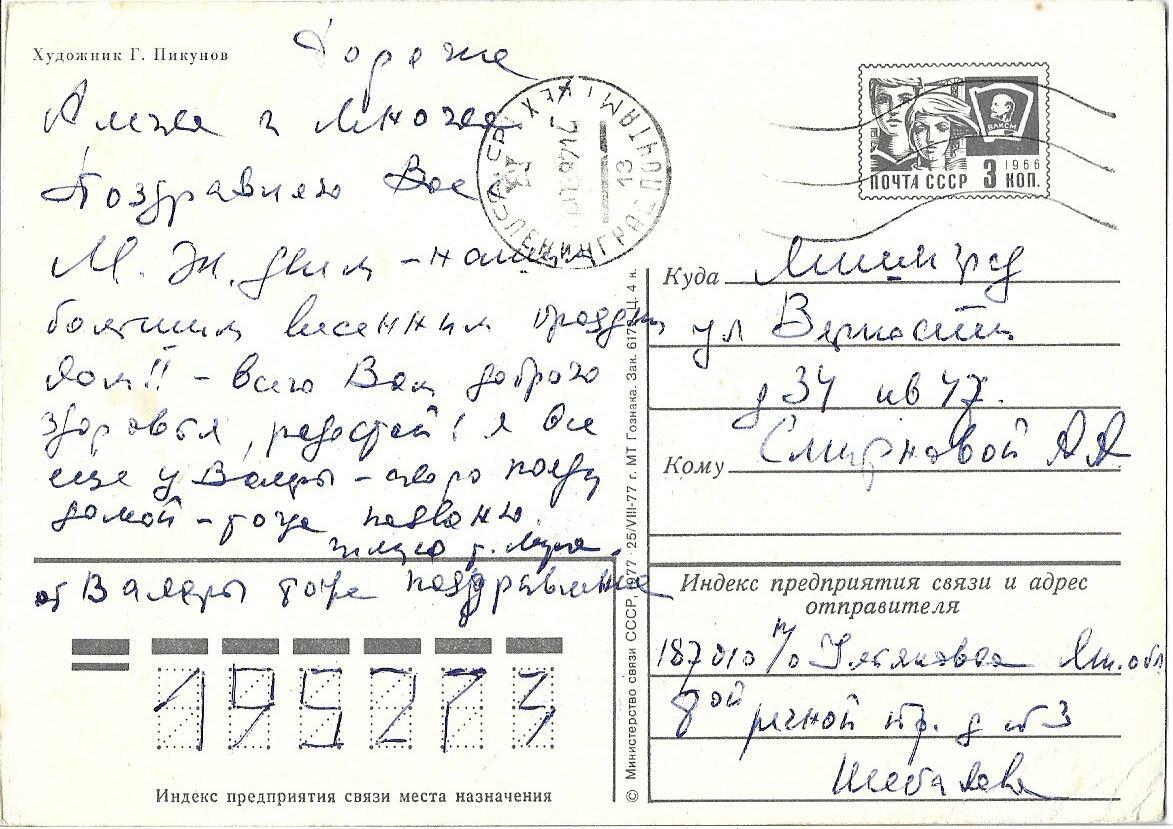 Художник Г. Пикунов
Дорогие
и
Поздравляю Вас
М. Ж. днем - нашим
большим весенним праздни
ком!! - всего Вам доброго
здоровья, радостей! я все
еще у Вали - скоро поеду
домой - тоже позвоню
от Вали тоже поздравление
195273
Индекс предприятия связи места назначения
© Министерство связи СССР, 1977 25/VIII-77 г. МТ Гознака. Зак. Ц. 4 к.
СССР ЛЕНИНГРАД ПОЧТАМТ
13
ВЛКСМ
1966
ПОЧТА СССР 3 КОП.
Куда Ленинград
ул Верности
д 34 кв 47.
Кому Смирновой А А
Индекс предприятия связи и адрес
отправителя
187010 п/о Ульяновка Лен. обл
8ой речной пр. д № 3